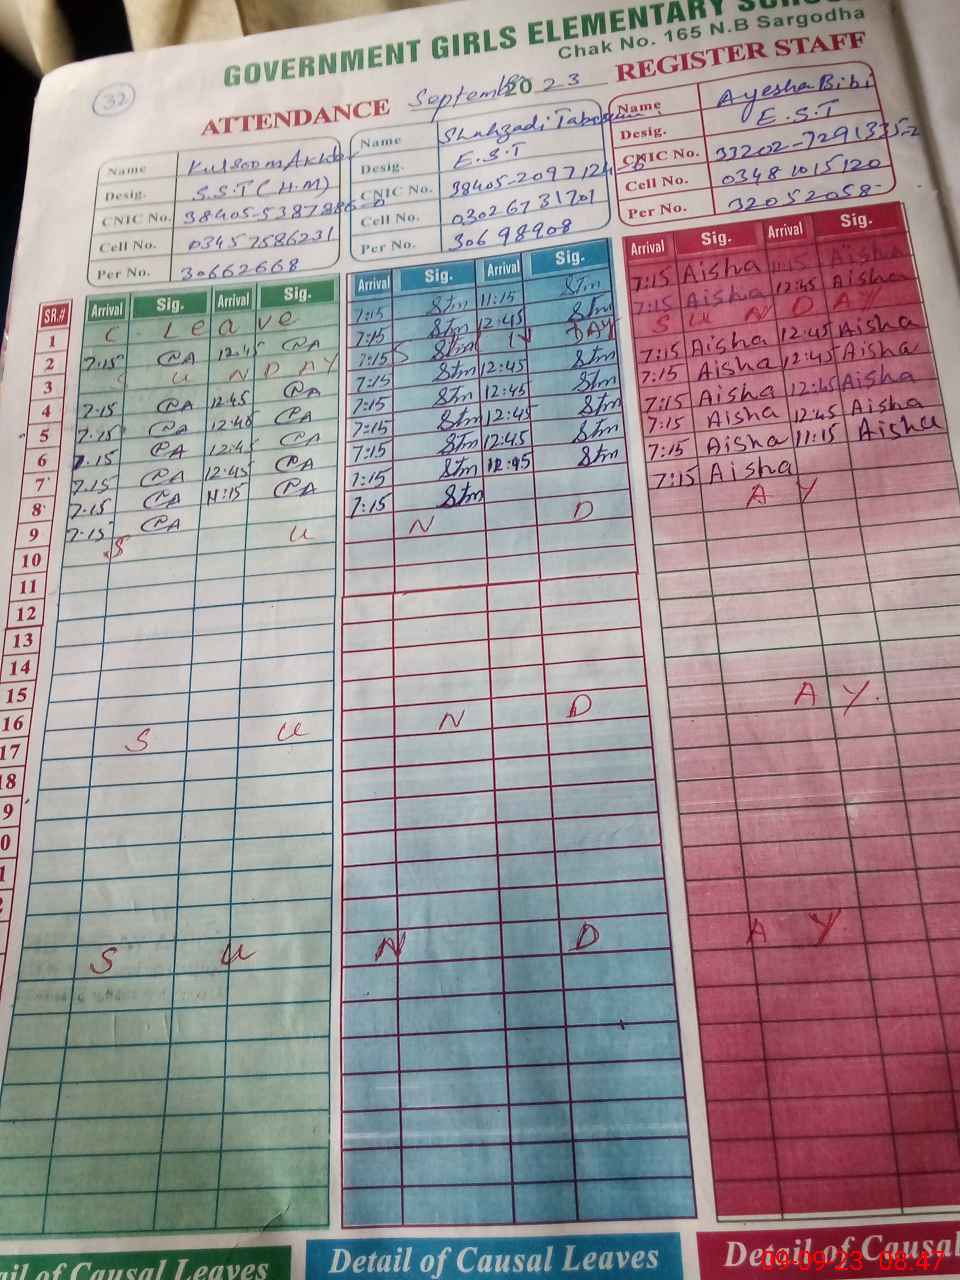 GOVERNMENT GIRLS ELEMENTARY
Chak No. 165 N.B Sargodha
32
ATTENDANCE September 2023 REGISTER STAFF
Name Kulsoom Akhter
Desig. S.S.T (H.M)
CNIC No.
Cell No. 03457586231
Per No. 30662668
Name Shahzadi
Desig. E.S.T
CNIC No. 38405-2097124-6
Cell No. 03026731701
Per No. 30698908
Name Ayesha Bibi
Desig. E.S.T
CNIC No. 33202-7291335-2
Cell No. 03481015120
Per No. 32052058
SR.# Arrival Sig. Arrival Sig. Arrival Sig. Arrival Sig. Arrival Sig. Arrival Sig.
1 C. Leave 7:15 Stm 11:15 Stm 7:15 Aisha 11:15 Aisha
2 7:15 @A 12:45 @A 7:15 Stm 12:45 Stm 7:15 Aisha 12:45 Aisha
3 S U N D A Y 7:15 S Stm N DAY S U N D A Y
4 7:15 @A 12:45 @A 7:15 Stm 12:45 Stm 7:15 Aisha 12:45 Aisha
5 7:15 @A 12:45 @A 7:15 Stm 12:45 Stm 7:15 Aisha 12:45 Aisha
6 7:15 @A 12:45 @A 7:15 Stm 12:45 Stm 7:15 Aisha 12:45 Aisha
7 7:15 @A 12:45 @A 7:15 Stm 12:45 Stm 7:15 Aisha 12:45 Aisha
8 7:15 @A 11:15 @A 7:15 Stm 12:45 Stm 7:15 Aisha 11:15 Aisha
9 7:15 @A 7:15 Stm 7:15 Aisha
10 S U N D A Y
11
12
13
14
15
16
17 S U N D A Y
18
9
0
1
2
S U N D A Y
Detail of Causal Leaves
Detail of Causal Leaves
Detail of Causal
09-09-23 08:47